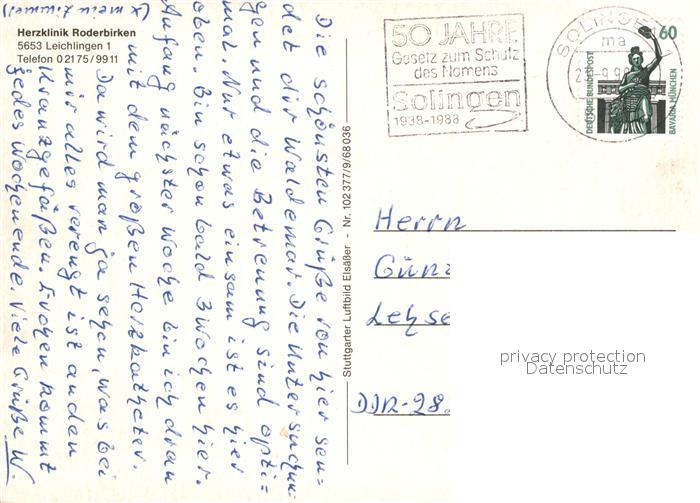 (x mein Zimmer)
Herzklinik Roderbirken
5653 Leichlingen 1
Telefon 02175/9911
Die schönsten Grüße von hier sen=
det dir Waldemar. Die Untersuchun=
gen und die Betreuung sind opti=
mal. Nur etwas einsam ist es hier
oben. Bin schon bald 3 Wochen hier.
Anfang nächster Woche bin ich dran
mit dem großen Herzkatheter.
Da wird man ja sehen, was bei
mir alles verengt ist an den
Kranzgefäßen. Evchen kommt
jedes Wochenende. Viele Grüße W.
Stuttgarter Luftbild Elsäßer - Nr. 102377/9/68036
50 JAHRE
Gesetz zum Schutz
des Namens
Solingen
1938-1988
SOLINGEN 1
ma
60
DEUTSCHE BUNDESPOST
BAVARIA MÜNCHEN
Herrn
Günt
Lehse
DDR-28
privacy protection
Datenschutz